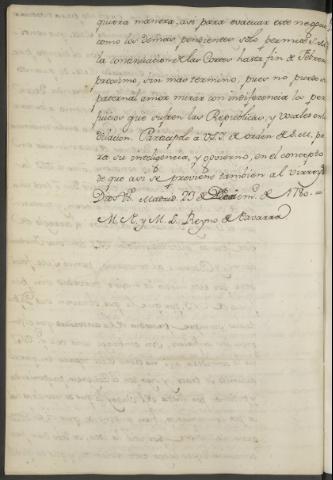 quiera manera, asi para evacuar este negocio,
como los demas pendientes solo permite S. M.
la continuacion de las Cortes hasta fin de Febrero
proximo, sin mas termino, pues no puede su
paternal amor mirar con indiferencia los per
juicos que sufren las Republicas, y vocales en la
dilacion. Participolo a V.S.I. de orden de S. M. pa
ra su inteligencia, y govierno, en el concepto
de que asi se previene tambien al Virrey.
Dios &c. Madrid 23 de de 1780. =
M. N. y M. L. Reyno de Navarra